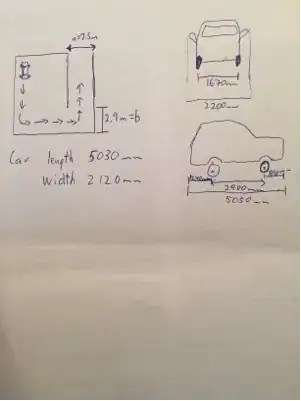 2,9m=b
Car length 5030mm
width 2120mm
1670mm
2200mm
2900mm
5030mm